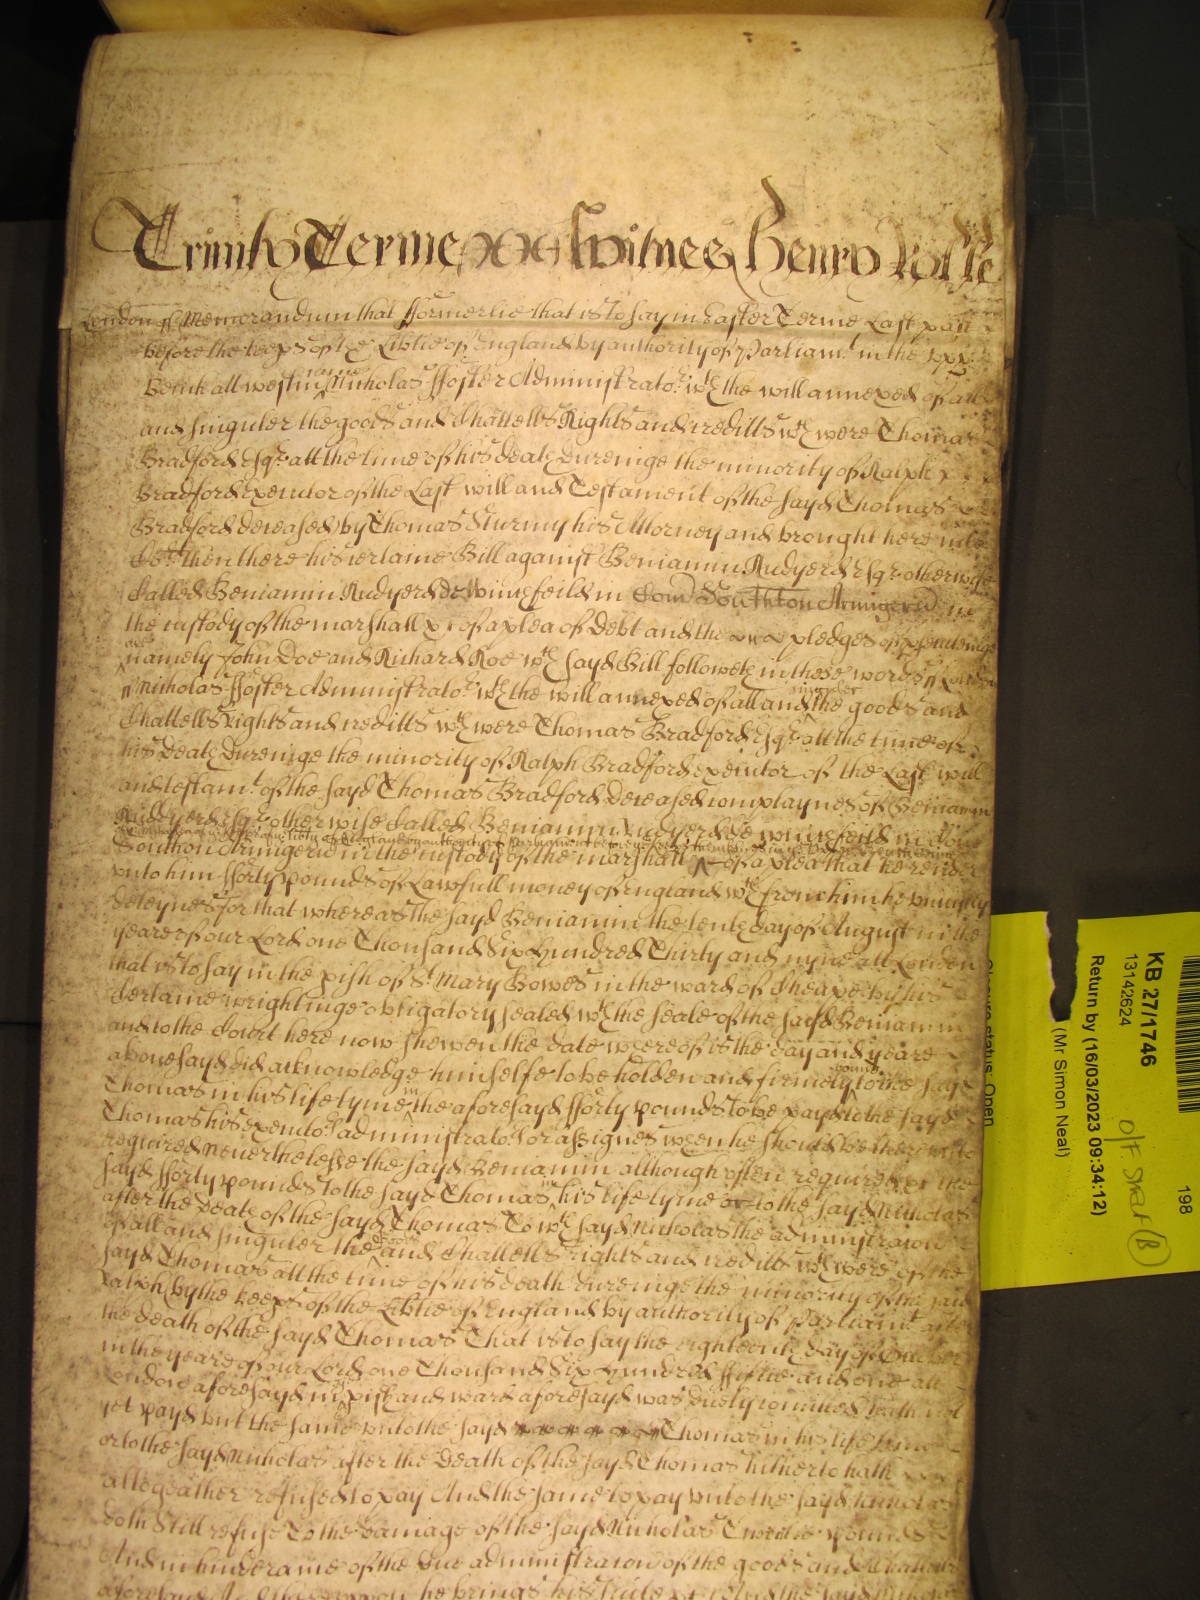 Trinity Terme Witnes Henry Rolle
London ss Memorandum that fformerlie that is to say in Easter Terme Last past
before the keeps of the Libtie of England by authority of Parliamt. in the upp
Bench att westm came Nicholas ffoster Administrator wth the will annexed of all
and singuler the goods and Chattells Rights and creditts wch were Thomas
Bradford Esqr. att the time of his death dureinge the minority of Ralph
Bradford executor of the Last will and Testament of the sayd Thomas
Bradford deceased by Thomas Sturmy his Attorney and brought here into
Cort. then there his certaine Bill against Beniamin Rudyerd Esqr. otherwise
Called Beniamin Rudyerd de Winchfeild in Com Southton Armigerū in
the custody of the marshall &c of a plea of Debt and the are pledges of psecuteinge
namely John Doe and Richard Roe wch sayd Bill followeth in these words ss London
ss Nicholas ffoster Administrator. wth the will annexed of all and singuler the goods and
Chattells rights and creditts wch were Thomas Bradford Esqr. att the time of
his death dureinge the minority of Ralph Bradford executor of the Last will
and testamt. of the sayd Thomas Bradford deceased complaynes of Beniamin
Rudyerd Esqr. otherwise Called Beniamin Rudyerd de Winchfeild in Com
Southton Armigerū in the custody of the marshall of a plea that he render
unto him fforty pounds of Lawfull money of England wch from him he uniustly
deteynes for that whereas the sayd Beniamin the tenth day of August in the
yeare of our Lord one Thousand Six Hundred Thirty and nyne att London
that is to say in the pish of St. Mary Bowes in the ward of Cheape by his
Certaine wrightinge obligatory sealed wth the seale of the sayd Beniamin
and to the Court here now shewen the date whereof is the day and yeare
abovesayd did acknowledge himselfe to be holden and firmely bound to the sayd
Thomas in his life tyme in the aforesayd fforty pounds to be payd to the sayd
Thomas his executors administrators or assignes when he should be thereunto
required Neverthelesse the sayd Beniamin although often required &c the
sayd fforty pounds to the sayd Thomas in his life tyme or to the sayd Nicholas
after the death of the sayd Thomas To wch sayd Nicholas the administracon
of all and singuler the goods and Chattells rights and creditts wch were of the
sayd Thomas att the time of his death dureinge the minority of the said
Ralph by the keeps of the Libtie of England by authority of Parliamt. after
the death of the sayd Thomas That is to say the eighteenth day of October
in the yeare of our Lord one Thousand Six Hundred ffiftie and one att
London aforesayd in ye pish and ward aforesayd was duely comitted hath not
yet payd but the same unto the sayd Thomas in his life tyme
or to the sayd Nicholas after the death of the sayd Thomas hitherto hath
altogeather refused to pay And the same to pay unto the sayd Nicholas
doth still refuse To the damage of the sayd Nicholas Twentie pounds
And in hinderance of the due administracon of the goods and Chattells
aforesayd And thereupon he brings his suite &c And the sayd Nicholas
KB 27/1746
13142624
Return by (16/03/2023 09:34:12)
(Mr Simon Neal)
198
status: Open